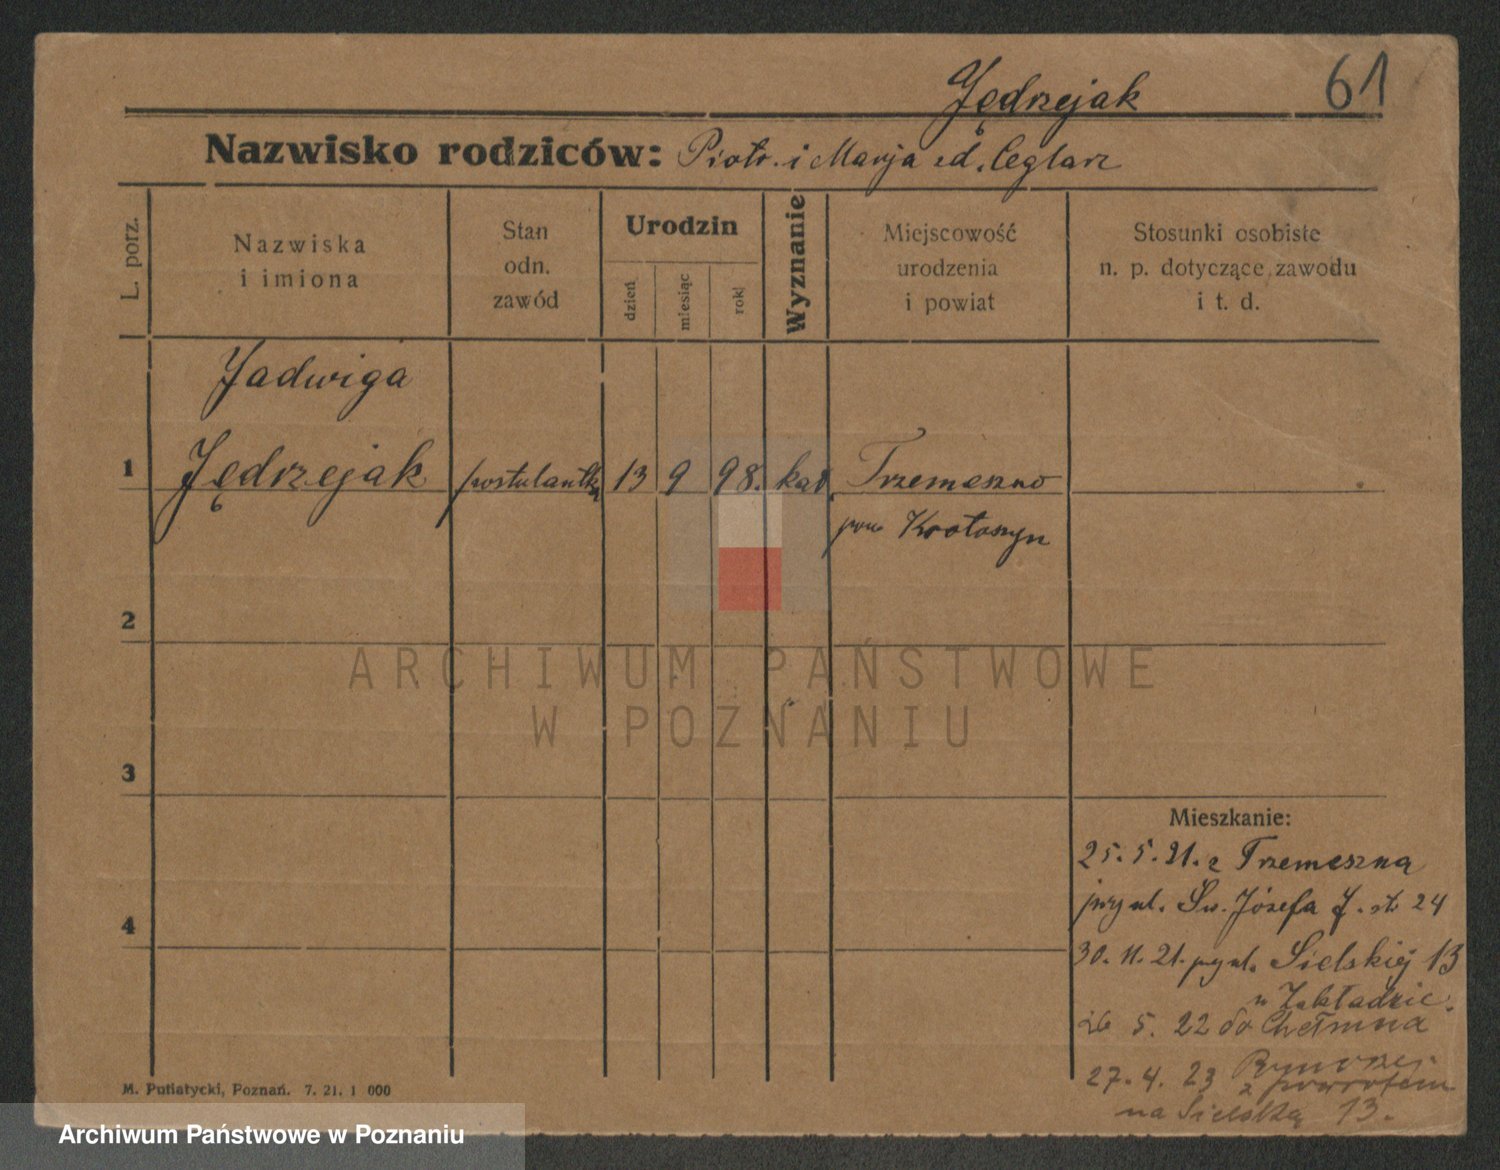 Jędrzejak 61
Nazwisko rodziców: Piotr i Marja ed. Ceglarz
L. porz.
Nazwiska
i imiona
Stan
odn.
zawód
Urodzin
dzień
miesiąc
rok
Wyznanie
Miejscowość
urodzenia
i powiat
Stosunki osobiste
n. p. dotyczące zawodu
i t. d.
Jadwiga
1 Jędrzejak postulantka 13 9 98. kat. Trzemeszno
pow Krotoszyn
2
3
4
Mieszkanie:
25. 5. 21. z Trzemeszna
przy ul. Św. Józefa 24
30. 11. 21. przy ul. Sielskiej 13
w Zakładzie.
26 5. 22 do Chełmna
27. 4. 23
z powrotem
na Sielską 13.
M. Putiatycki, Poznań. 7. 21. 1 000
ARCHIWUM PAŃSTWOWE
W POZNANIU
Archiwum Państwowe w Poznaniu